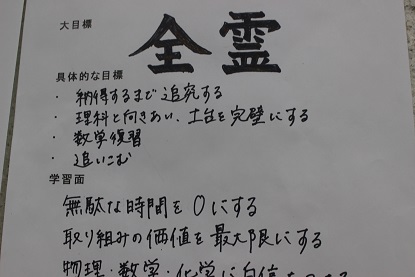 大目標
全霊
具体的な目標
・ 納得するまで追究する
・ 理科と向きあい、土台を完璧にする
・ 数学復習
・ 追いこむ
学習面
無駄な時間を0にする
取り組みの価値を最大限にする
物理・数学・化学に自信を